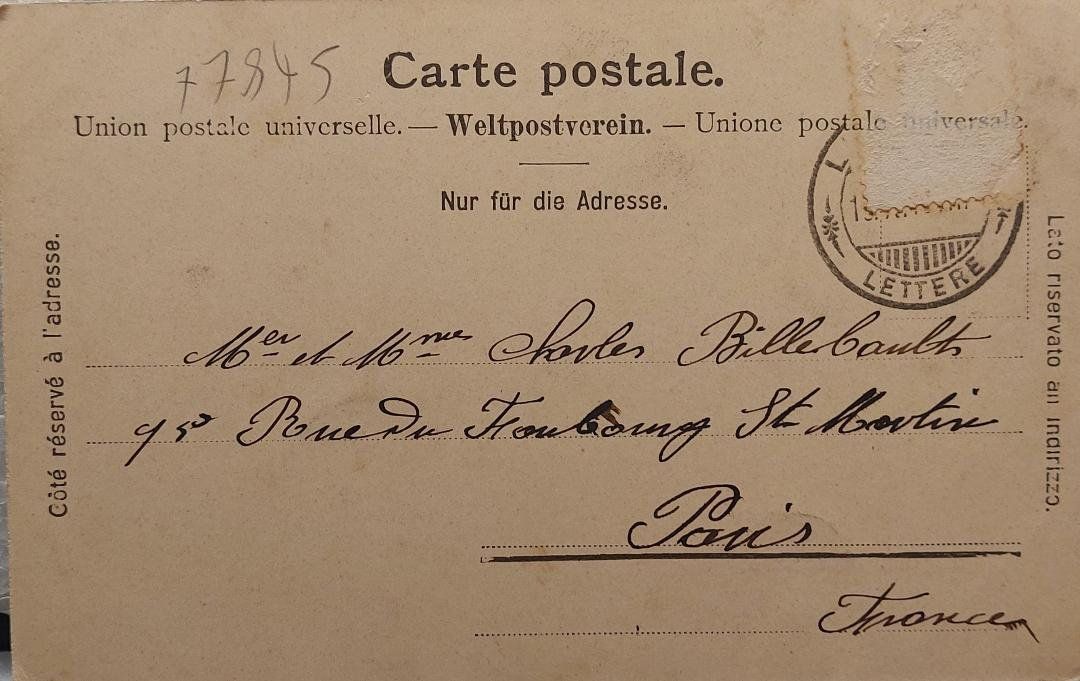 77845
Carte postale.
Union postale universelle. — Weltpostverein. — Unione postale universale.
Nur für die Adresse.
Côté réservé à l'adresse.
Lato riservato all indirizzo.
LETTERE
Mer et Mme Charles Billebault
95 Rue du Foubourg St Martin
Paris
France